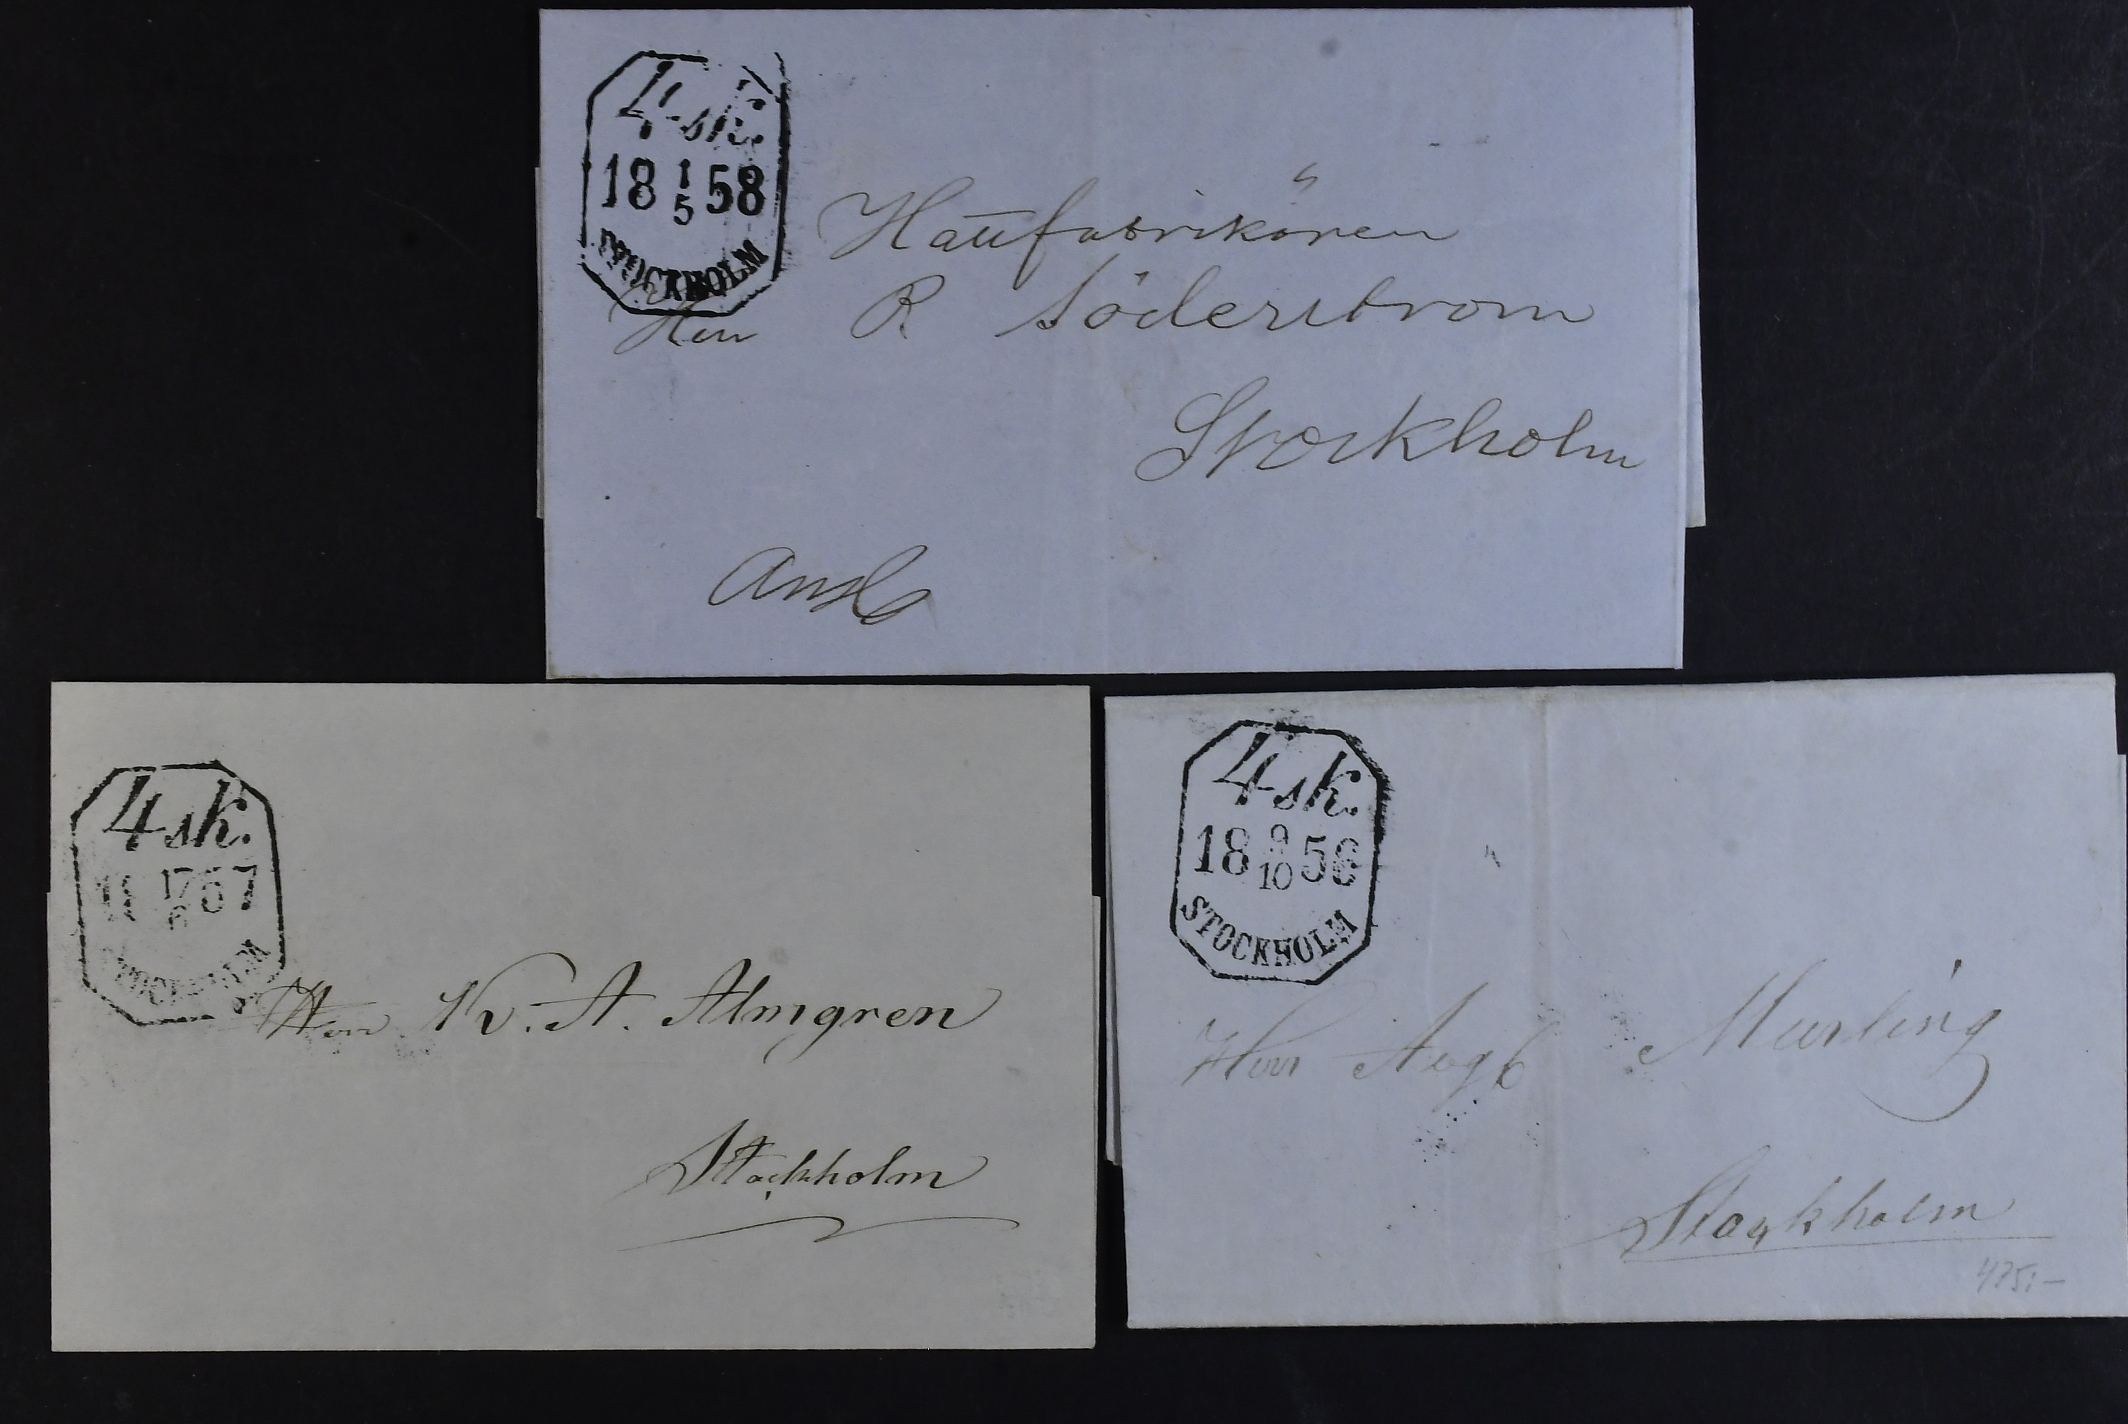 4 sk.
18 1/5 58
STOCKHOLM
Hattfabrikören
Herr R Söderström
Stockholm
4 sk.
17/6 57
STOCKHOLM
Herr K. A. Almgren
Stockholm
4 sk.
18 9/10 56
STOCKHOLM
Herr Aug
Stockholm